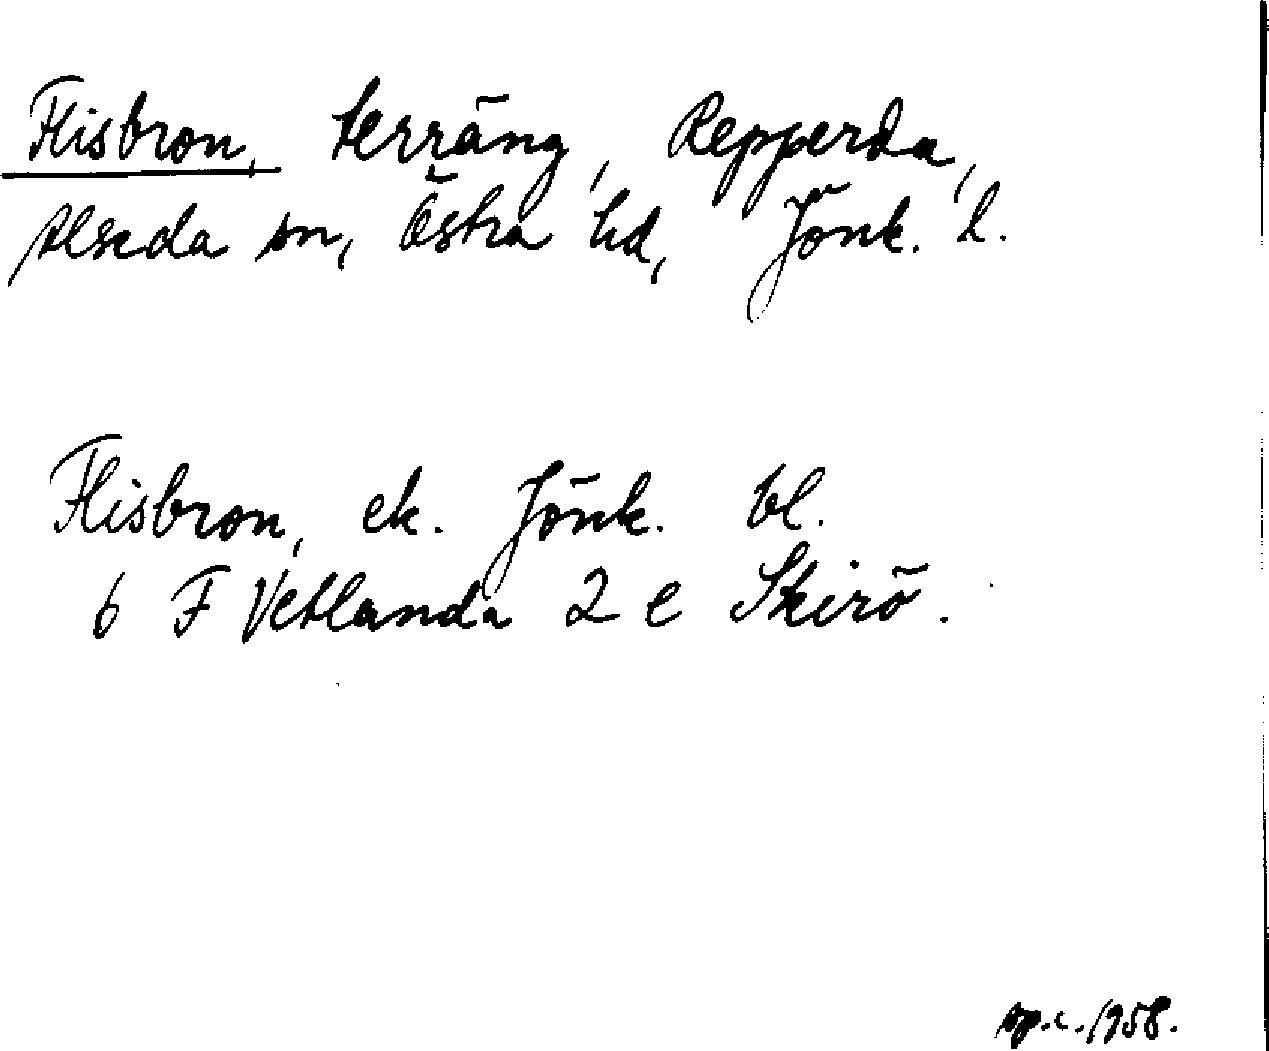 Flisbron, terräng, Repperda,
Alseda sn, Östra hd, Jönk. l.
Flisbron, ek. Jönk. bl.
6 F Vetlanda 2 e Skirö.
op.c. 1958.